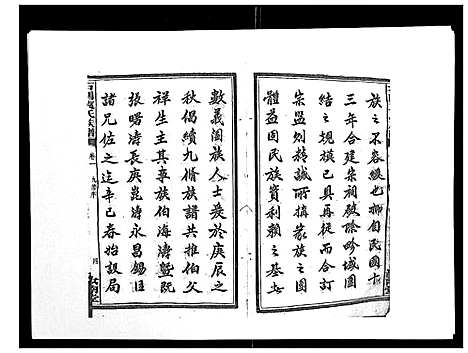 族之不容緩也抑自民國十
三年合建宗祠氈除畛域團
結之規模已具再從而合訂
宗盟則於誠所搆蒙族之團
體益固民族實利賴之基也
數義闔族人士爰於庚辰之
秋倡續九脩族譜共推伯父
祥生主其事族伯海濤暨阮
張曙濤長庚崑濤永昌錫臣
諸兄佐之迄辛巳春始設局
氏族譜
卷一
九脩序
四